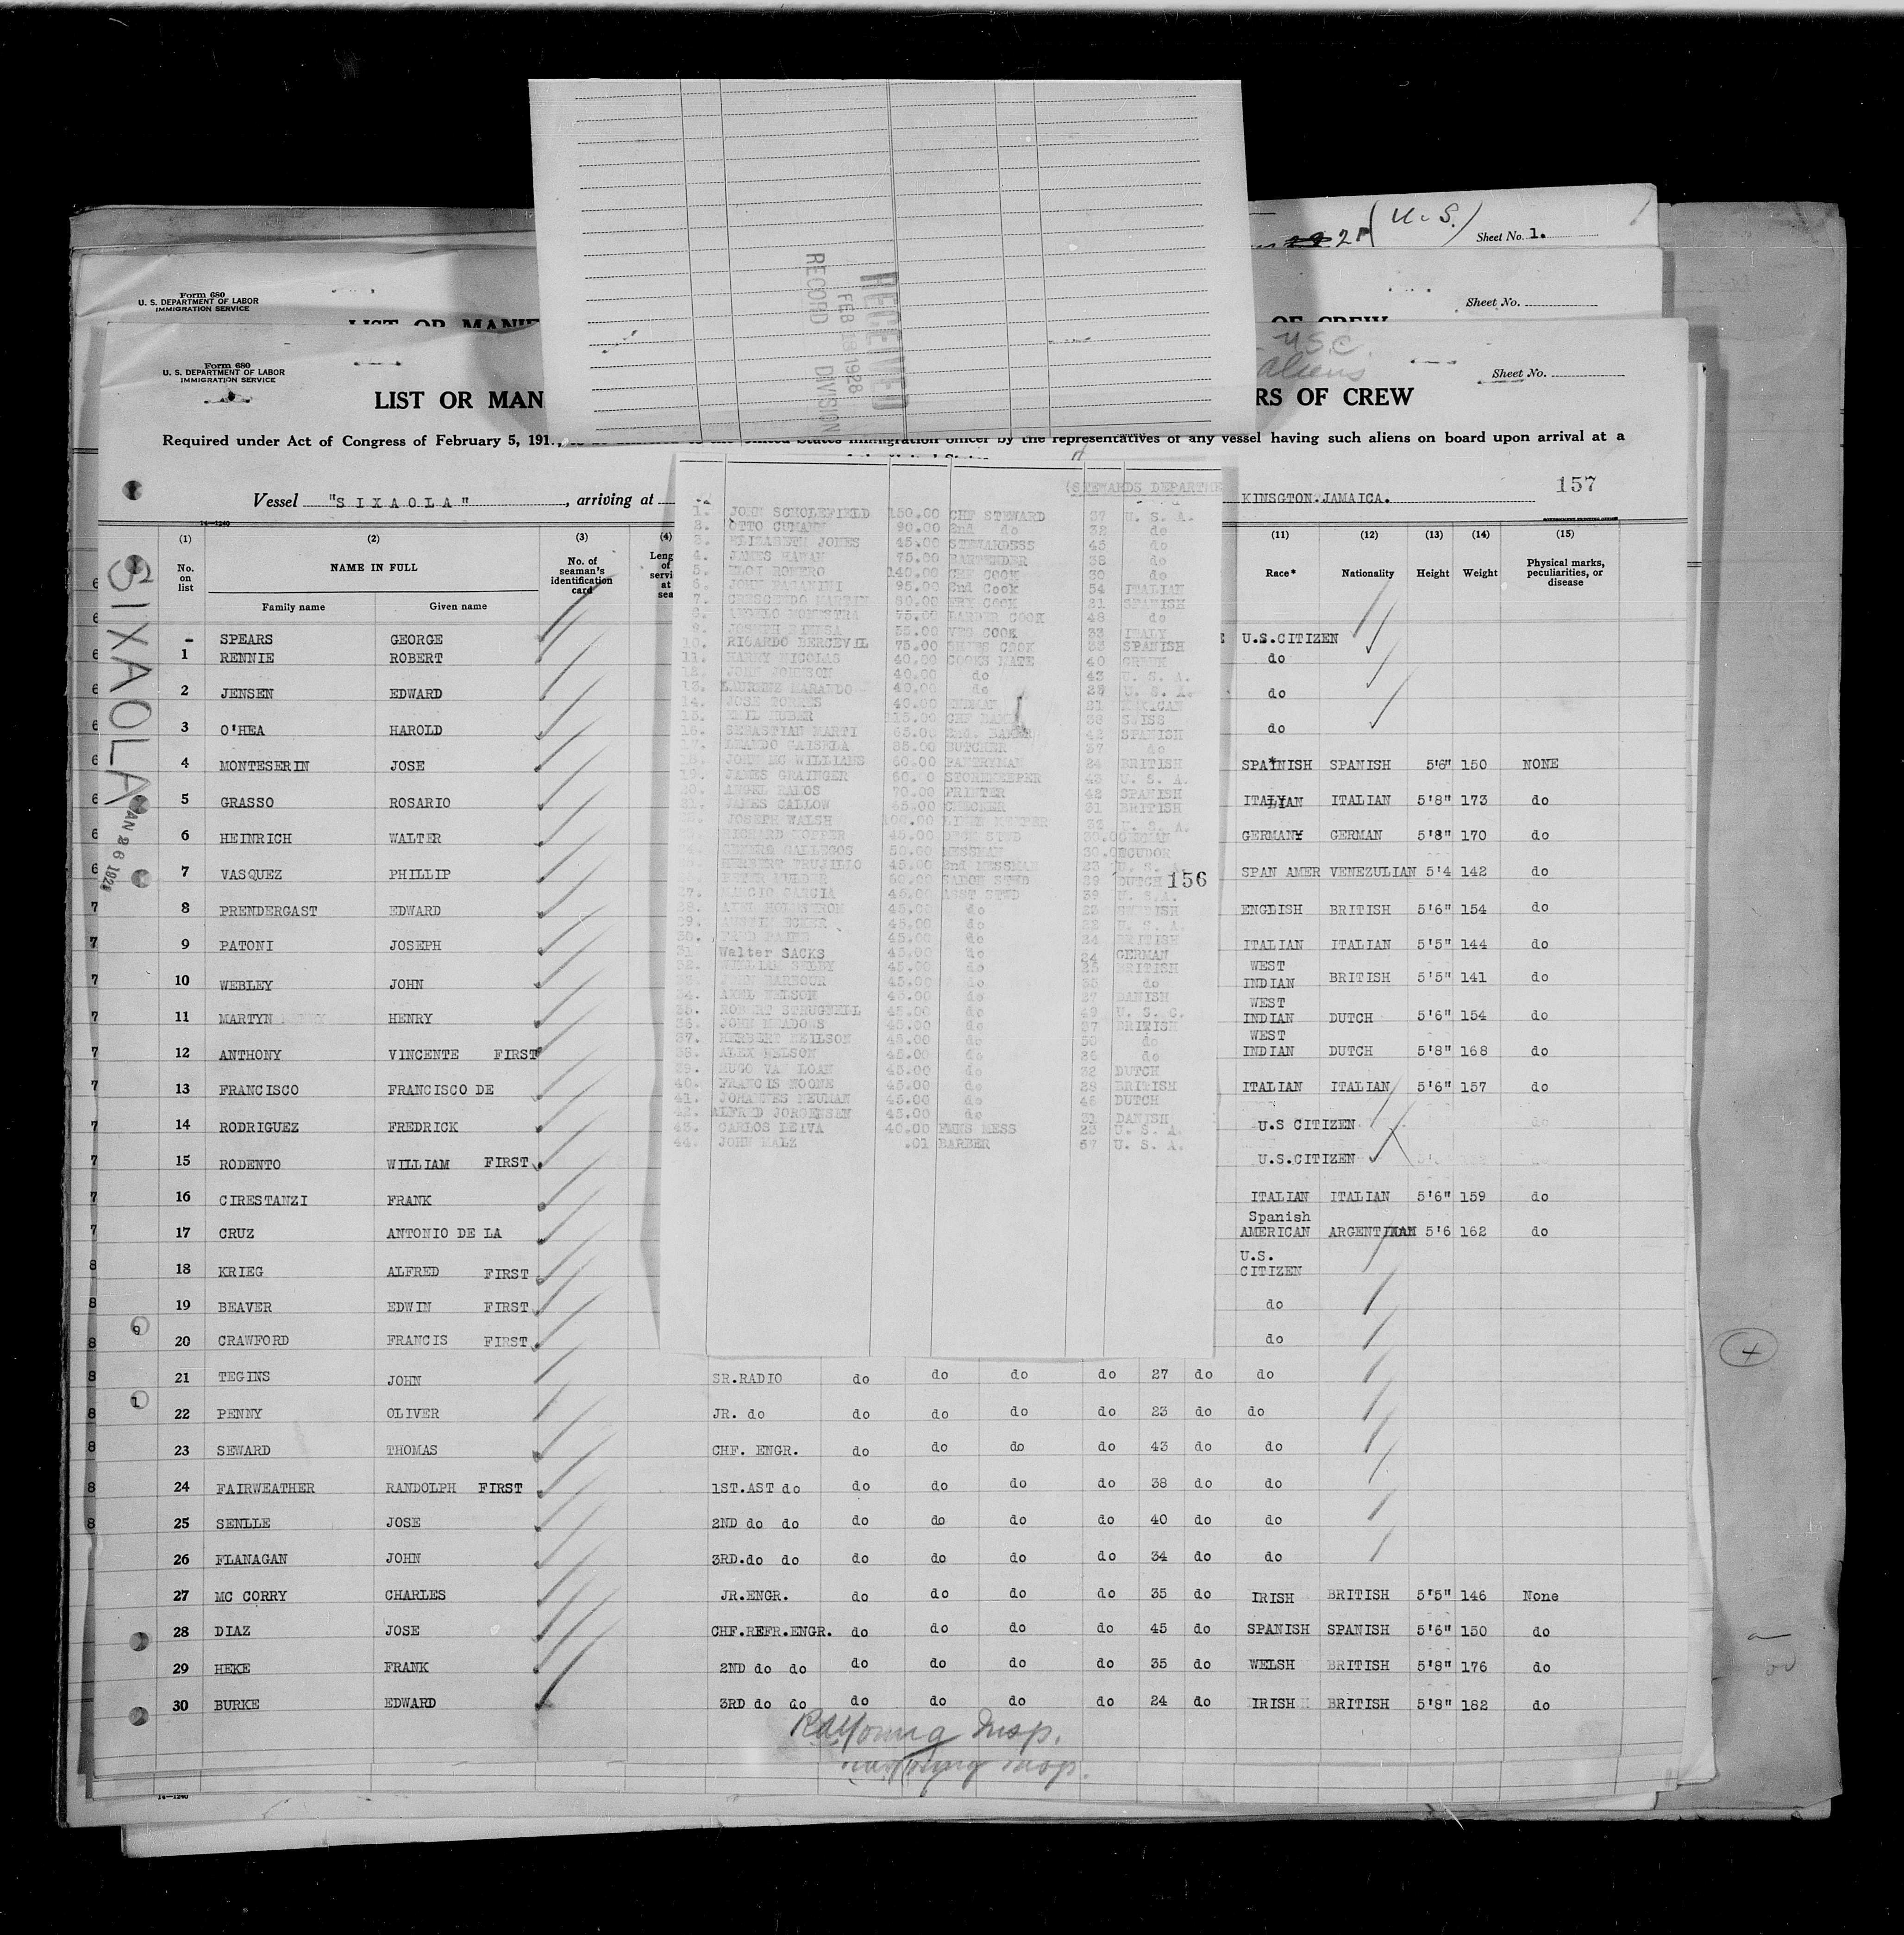 (U.S.)
Sheet No. 1.
Form 680
U. S. DEPARTMENT OF LABOR
IMMIGRATION SERVICE
Sheet No.
RECEIVED
FEB 1928
RECORD DIVISION
OF CREW
U.S.C.
Aliens
Form 680
U. S. DEPARTMENT OF LABOR
IMMIGRATION SERVICE
Sheet No.
LIST OR MAN RS OF CREW
Required under Act of Congress of February 5, 191 United States immigration officer by the representatives of any vessel having such aliens on board upon arrival at a
157
Vessel "SIXAOLA", arriving at KINSGTON.JAMAICA.
14-1240
(1) (2) (3) (4) (11) (12) (13) (14) (15)
No. on list NAME IN FULL No. of seaman's identification card Leng of servi at sea Race* Nationality Height Weight Physical marks, peculiarities, or disease
Family name Given name
SIXAOLA
- SPEARS GEORGE U.S.CITIZEN
1 RENNIE ROBERT do
2 JENSEN EDWARD do
3 O'HEA HAROLD do
4 MONTESERIN JOSE SPANISH SPANISH 5'6" 150 NONE
5 GRASSO ROSARIO ITALIAN ITALIAN 5'8" 173 do
6 HEINRICH WALTER GERMANY GERMAN 5'8" 170 do
7 VASQUEZ PHILLIP SPAN AMER VENEZULIAN 5'4 142 do
8 PRENDERGAST EDWARD ENGLISH BRITISH 5'6" 154 do
9 PATONI JOSEPH ITALIAN ITALIAN 5'5" 144 do
10 WEBLEY JOHN WEST INDIAN BRITISH 5'5" 141 do
11 MARTYN HENRY WEST INDIAN DUTCH 5'6" 154 do
12 ANTHONY VINCENTE FIRST WEST INDIAN DUTCH 5'8" 168 do
13 FRANCISCO FRANCISCO DE ITALIAN ITALIAN 5'6" 157 do
14 RODRIGUEZ FREDRICK U.S CITIZEN
15 RODENTO WILLIAM FIRST U.S.CITIZEN
16 CIRESTANZI FRANK ITALIAN ITALIAN 5'6" 159 do
17 CRUZ ANTONIO DE LA Spanish AMERICAN ARGENT 5'6 162 do
18 KRIEG ALFRED FIRST U.S. CITIZEN
19 BEAVER EDWIN FIRST do
20 CRAWFORD FRANCIS FIRST do
21 TEGINS JOHN SR.RADIO do do do do 27 do do
22 PENNY OLIVER JR. do do do do do 23 do do
23 SEWARD THOMAS CHF. ENGR. do do do do 43 do do
24 FAIRWEATHER RANDOLPH FIRST 1ST.AST do do do do do 38 do do
25 SENLLE JOSE 2ND do do do do do do 40 do do
26 FLANAGAN JOHN 3RD.do do do do do do 34 do do
27 MC CORRY CHARLES JR.ENGR. do do do do 35 do IRISH BRITISH 5'5" 146 None
28 DIAZ JOSE CHF.REFR.ENGR. do do do do 45 do SPANISH SPANISH 5'6" 150 do
29 HEKE FRANK 2ND do do do do do do 35 do WELSH BRITISH 5'8" 176 do
30 BURKE EDWARD 3RD do do do do do do 24 do IRISH BRITISH 5'8" 182 do
Young Insp.
Insp.
14-1240
(STEWARDS DEPARTME
1. JOHN SCHOLEFIELD 150.00 CHF STEWARD 37 U. S. A.
2. OTTO 90.00 2nd do 32 do
3. ELIZABETH JONES 45.00 STEWARDESS 45 do
4. JAMES 75.00 BARTENDER 38 do
5. ELOI ROMERO 140.00 CHF COOK 30 do
6. JOHN PAGANINI 95.00 2nd Cook 54 ITALIAN
7. 80.00 FRY COOK 21 SPANISH
8. 75.00 LARDER COOK 48 do
9. JOSEPH 55.00 VEG COOK 33 ITALY
10. RICARDO BERCEVIL 75.00 COOK 33 SPANISH
11. HARRY NICOLAS 40.00 COOKS MATE 40 GREEK
12. JOHN JOHNSON 40.00 do 43 U. S. A.
13. LAURENZ MARANDO 40.00 do 25 U. S. A.
14. JOSE TORRES 40.00 21 MEXICAN
15. EMIL HUBER 115.00 CHF 36 SWISS
16. SEBASTIAN MARTI 65.00 2nd. BAKER 42 SPANISH
17. 85.00 BUTCHER 37 do
18. JOHN MC WILLIAMS 60.00 PANTRYMAN 24 BRITISH
19. JAMES GRAINGER 60. 0 STOREKEEPER 43 U. S. A.
20. ANGEL RAMOS 70.00 PRINTER 42 SPANISH
21. JAMES CALLOW 65.00 CHECKER 31 BRITISH
JOSEPH WALSH 100.00 32 U. S. A.
RICHARD HOPPER 45.00 DECK STWD
GALLEGOS 50.00 MESSMAN
HERBERT TRUJILLO 45.00 2nd MESSMAN 23 U. S. A.
PETER MULDER 60.00 SALON STWD 29 DUTCH 156
27. GARCIA 45.00 ASST STWD 39 U. S.A.
28. AXEL HOLMSTROM 45.00 do 23 SWEDISH
29. 45.00 do 22 U. S. A.
30. 45.00 do 24 BRITISH
31 Walter SACKS 45.00 do 24 GERMAN
32. WILLIAM SELBY 45.00 do 25 BRITISH
JOHN BARBOUR 45.00 do 35 do
34. AXEL NELSON 45.00 do 27 DANISH
35. ROBERT STRUGNELL 45.00 do 49 U. S. C.
36. JOHN MEADOWS 45.00 do 37 BRITISH
37. HERBERT NEILSON 45.00 do 38 do
38. ALEX NELSON 45.00 do 26 do
39. HUGO VAN LOAN 45.00 do 32 DUTCH
40. FRANCIS NOONE 45.00 do 29 BRITISH
41. JOHANNES NEUMAN 45.00 do 46 DUTCH
42. ALFRED JORGENSEN 45.00 do 31 DANISH
43. CARLOS LEIVA 40.00 MESS 23 U. S. A.
44. JOHN MALZ .01 BARBER 57 U. S. A.